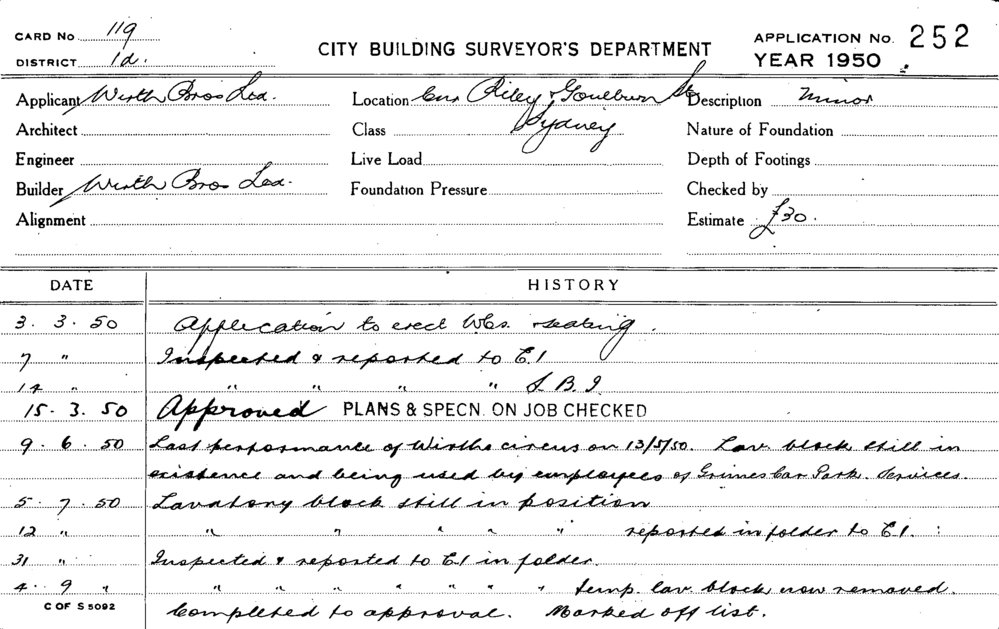 CARD No 119
DISTRICT 1d.
CITY BUILDING SURVEYOR'S DEPARTMENT
APPLICATION No. 252
YEAR 1950
Applicant Wirth Bros Ltd.
Location Cnr Riley & Goulburn Sts
Sydney
Description Minor
Architect
Class
Nature of Foundation
Engineer
Live Load
Depth of Footings
Builder Wirth Bros Ltd.
Foundation Pressure
Checked by
Alignment
Estimate £30.
DATE HISTORY
3. 3. 50 Application to erect W.Cs. & seating.
7 " Inspected & reported to E.1
14 " " " " " S.B.I
15. 3. 50 Approved PLANS & SPECN. ON JOB CHECKED
9. 6. 50 Last performance of Wirths circus on 13/5/50. Lav. block still in
existence and being used by employees of Grimes Car Park. Services.
5. 7. 50 Lavatory block still in position
12 " " " " " " reported in folder to E.1. :
31 " Inspected & reported to E.1 in folder.
4. 9 " " " " " " " temp. lav. block now removed.
Completed to approval. Marked off list.
C OF S 5092